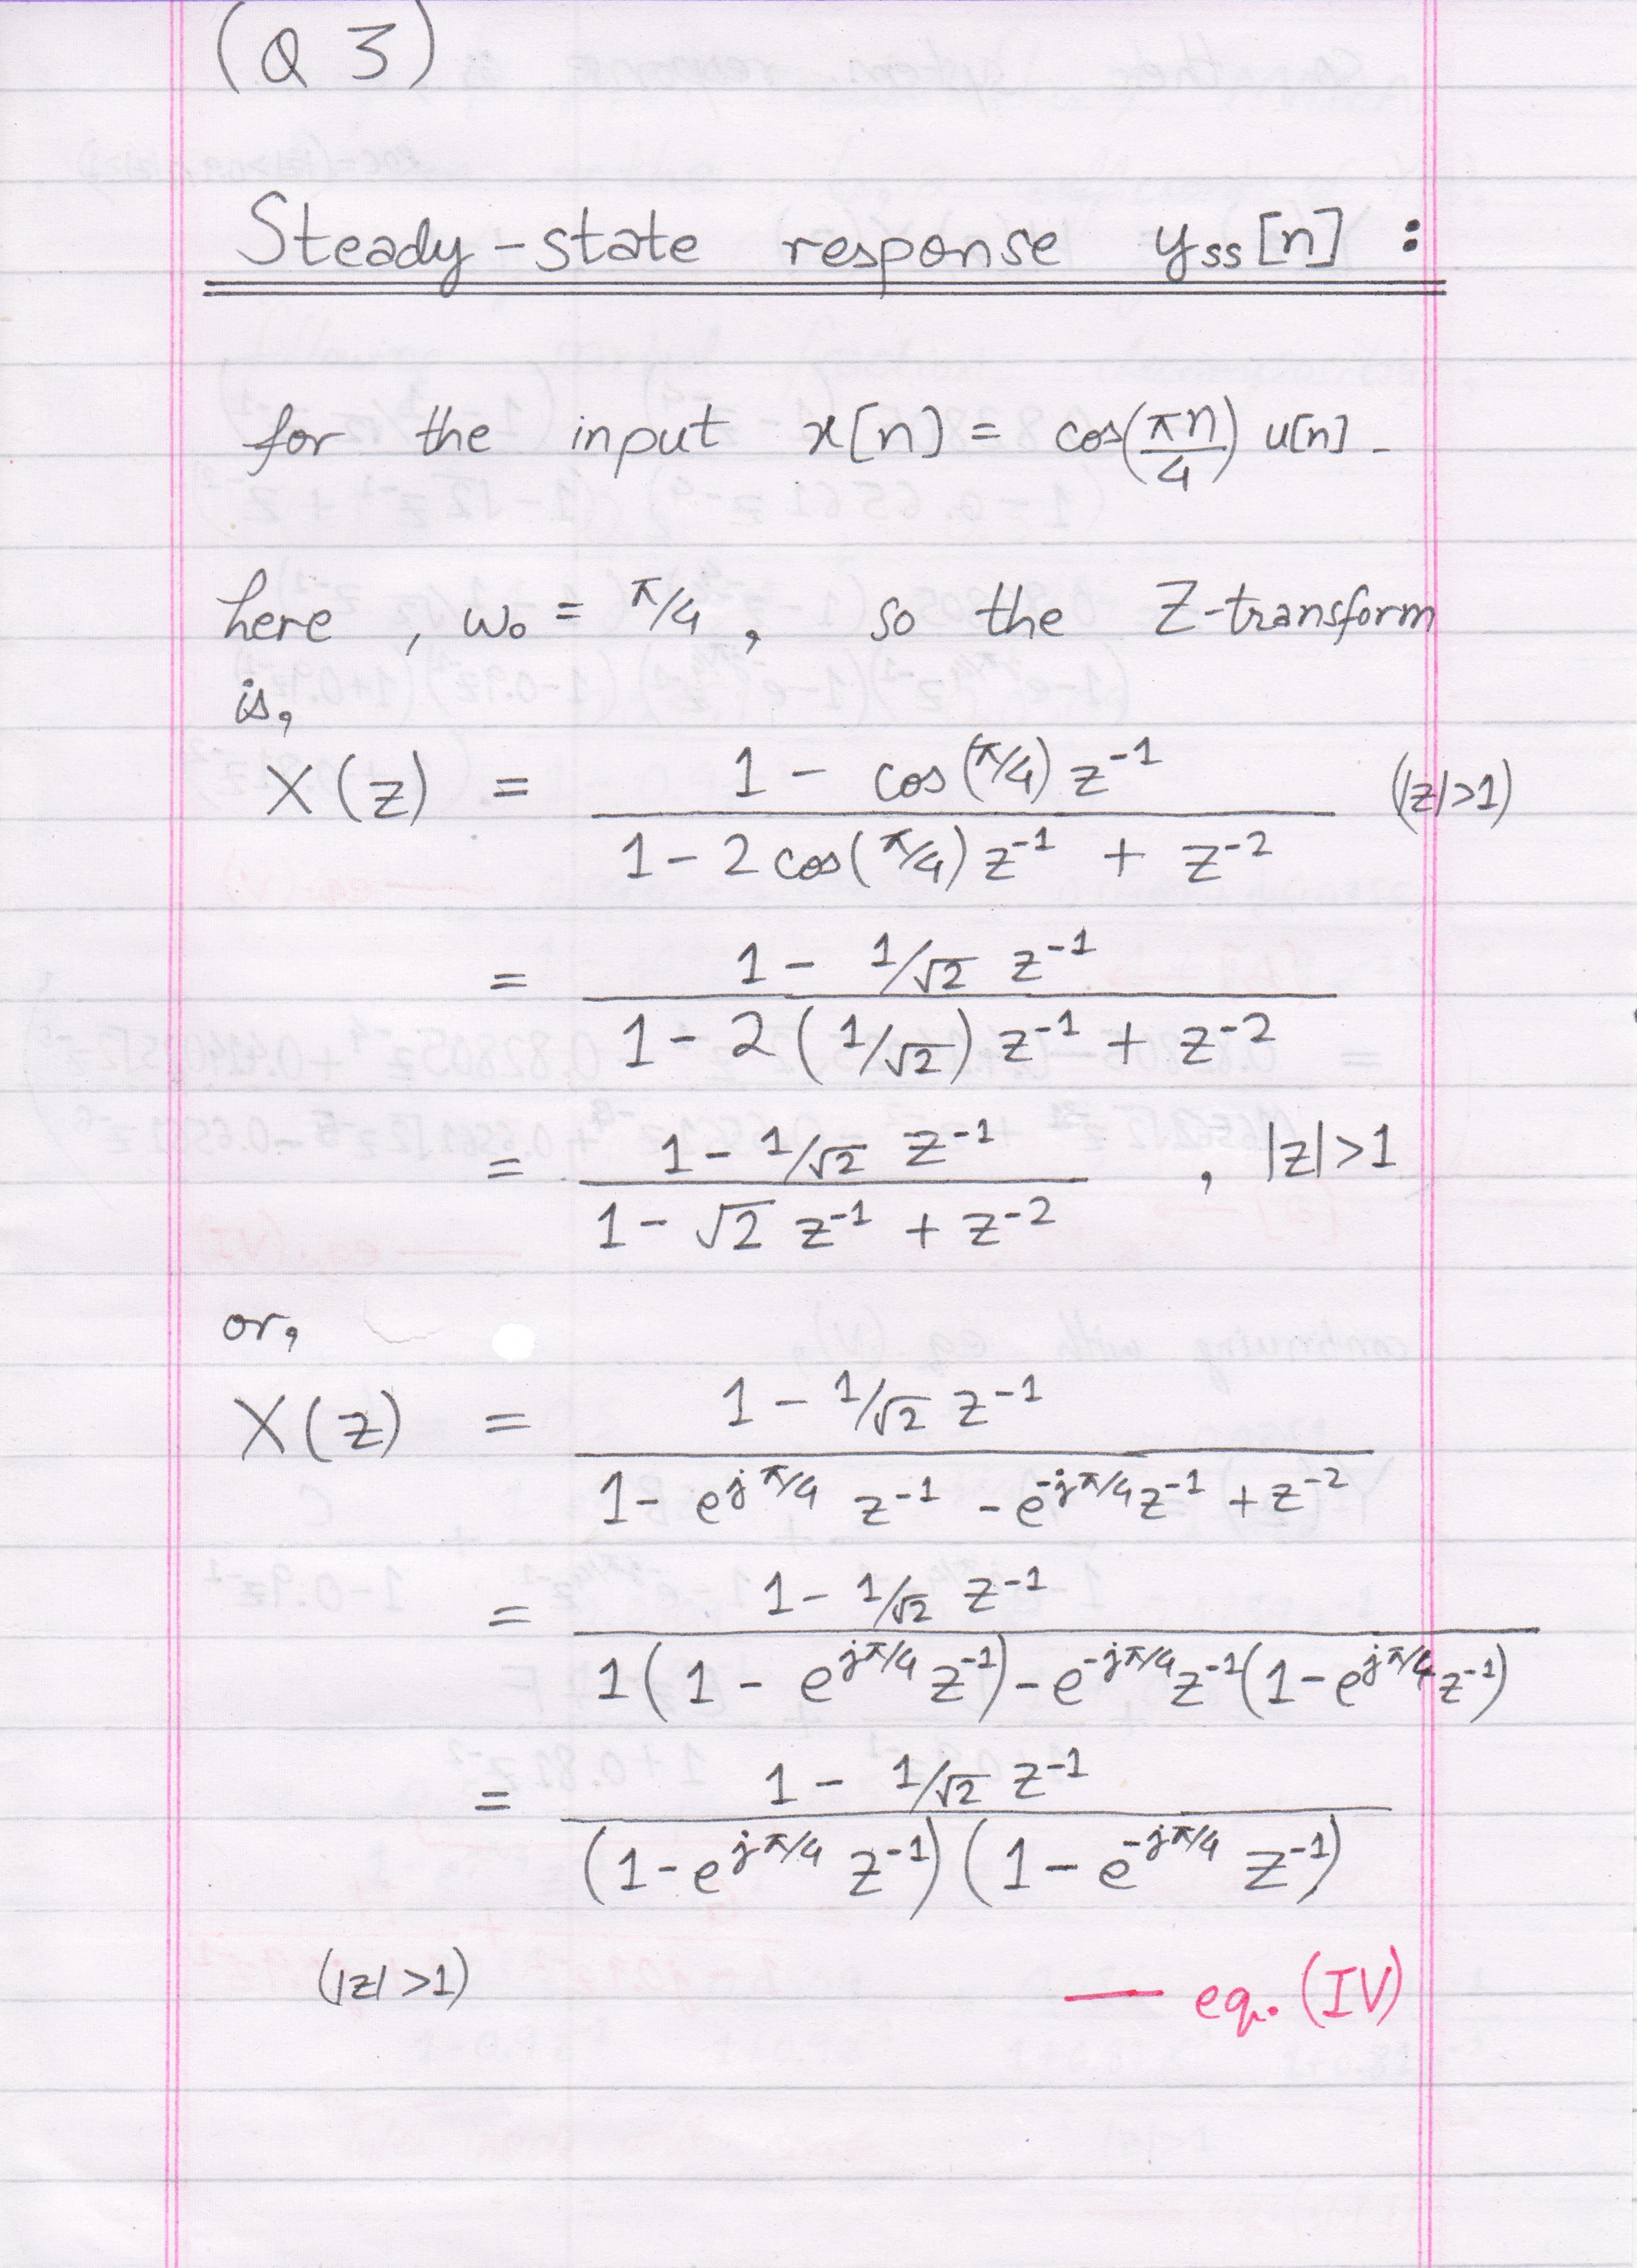 (Q 3)
Steady-state response yss[n] :
for the input x[n] = cos(πn/4) u[n].
here, ω₀ = π/4, so the Z-transform
is,
X(z) = (1 - cos(π/4) z⁻¹) / (1 - 2 cos(π/4) z⁻¹ + z⁻²) (|z|>1)
= (1 - 1/√2 z⁻¹) / (1 - 2(1/√2) z⁻¹ + z⁻²)
= (1 - 1/√2 z⁻¹) / (1 - √2 z⁻¹ + z⁻²) , |z|>1
or,
X(z) = (1 - 1/√2 z⁻¹) / (1 - e^(jπ/4) z⁻¹ - e^(-jπ/4) z⁻¹ + z⁻²)
= (1 - 1/√2 z⁻¹) / (1(1 - e^(jπ/4) z⁻¹) - e^(-jπ/4) z⁻¹(1 - e^(jπ/4) z⁻¹))
= (1 - 1/√2 z⁻¹) / ((1 - e^(jπ/4) z⁻¹)(1 - e^(-jπ/4) z⁻¹))
(|z|>1) — eq. (IV)